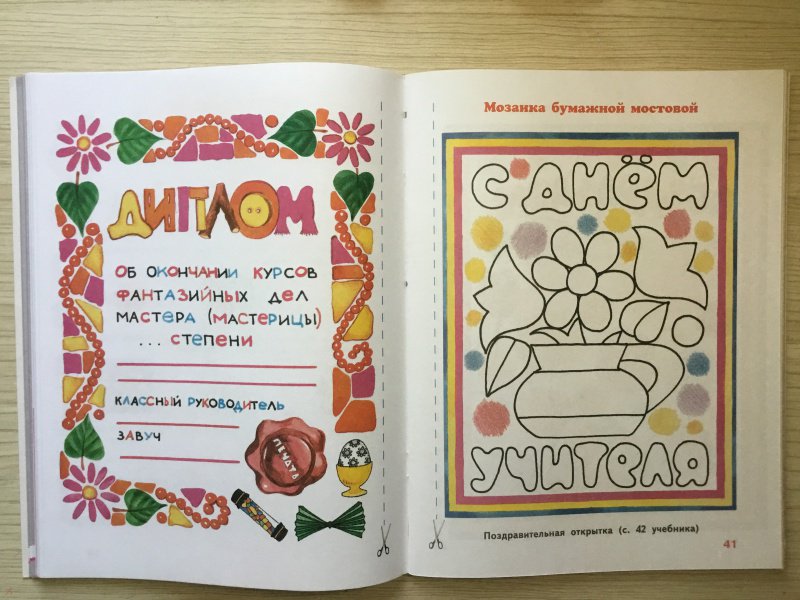 ДИПЛОМ
ОБ ОКОНЧАНИИ КУРСОВ
ФАНТАЗИЙНЫХ ДЕЛ
МАСТЕРА (МАСТЕРИЦЫ)
... СТЕПЕНИ
КЛАССНЫЙ РУКОВОДИТЕЛЬ
ЗАВУЧ
ПЕЧАТЬ
Мозаика бумажной мостовой
С ДНЁМ
УЧИТЕЛЯ
Поздравительная открытка (с. 42 учебника)
41